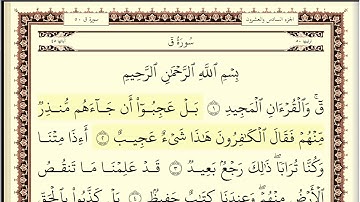 الجزء السادس والعشرون
سورة ق ٥٠
سُورَةُ قٓ
بِسْمِ ٱللَّهِ ٱلرَّحْمَٰنِ ٱلرَّحِيمِ
قٓ ۚ وَٱلْقُرْءَانِ ٱلْمَجِيدِ ١ بَلْ عَجِبُوٓا۟ أَن جَآءَهُم مُّنذِرٌ
مِّنْهُمْ فَقَالَ ٱلْكَٰفِرُونَ هَٰذَا شَىْءٌ عَجِيبٌ ٢ أَءِذَا مِتْنَا
وَكُنَّا تُرَابًا ۖ ذَٰلِكَ رَجْعٌۢ بَعِيدٌ ٣ قَدْ عَلِمْنَا مَا تَنقُصُ
ٱلْأَرْضُ مِنْهُمْ ۖ وَعِندَنَا كِتَٰبٌ حَفِيظٌۢ ٤ بَلْ كَذَّبُوا۟ بِٱلْحَقِّ